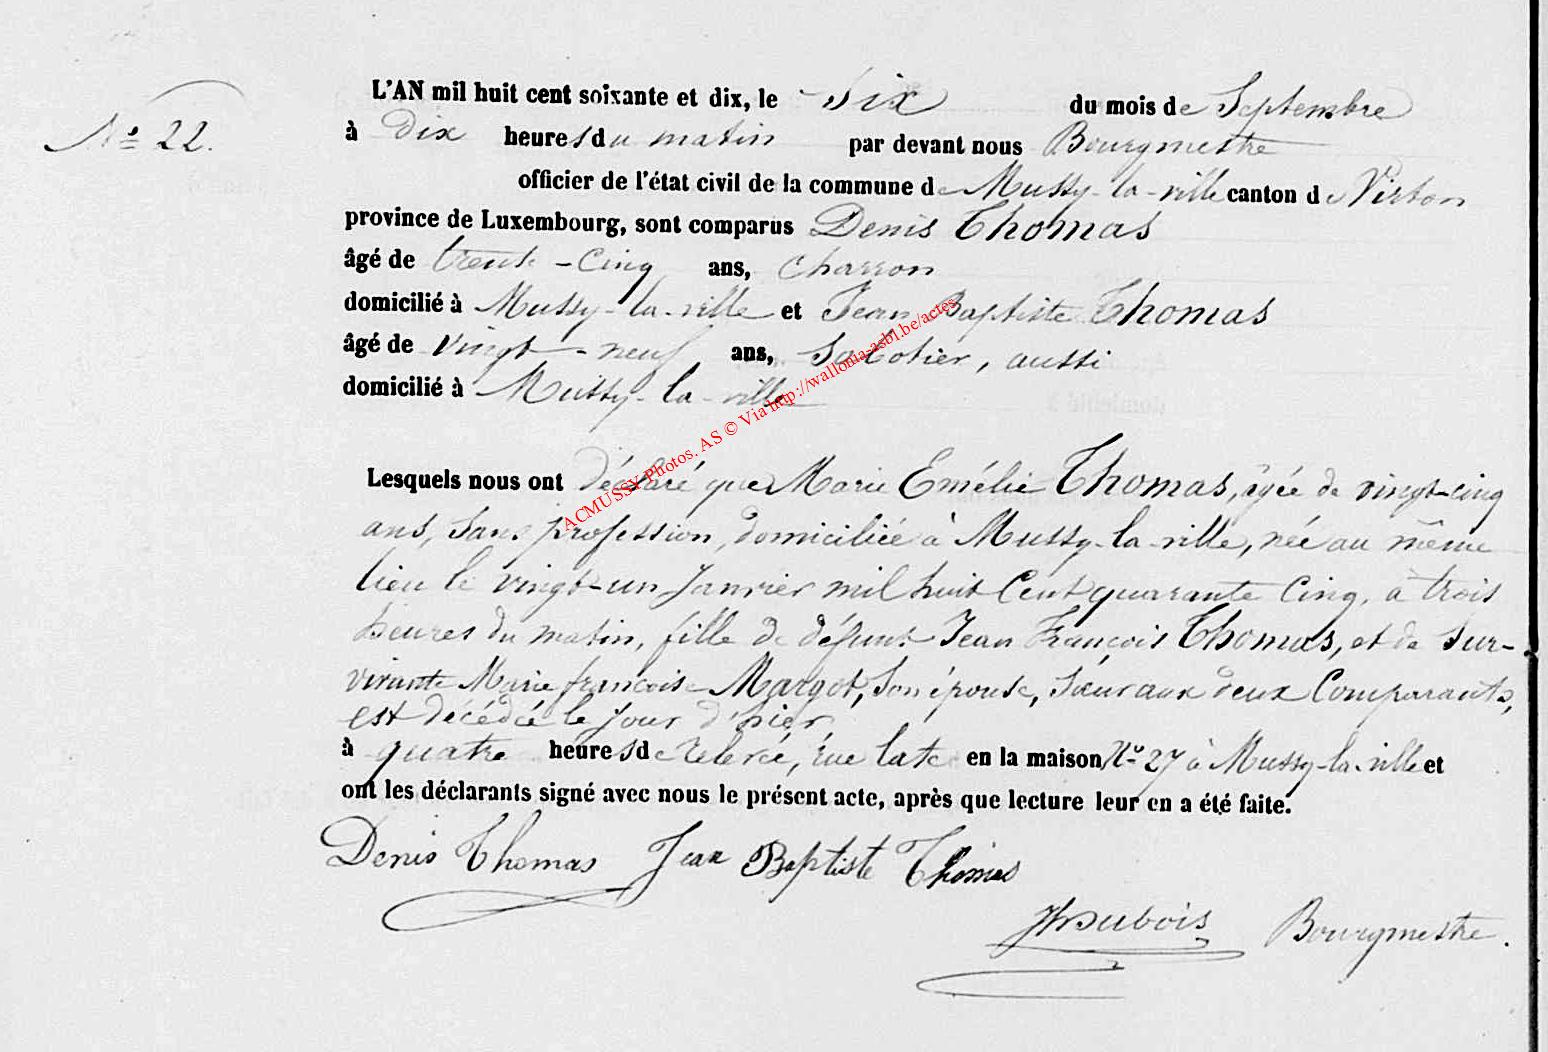 L'AN mil huit cent soixante et dix, le Six du mois de Septembre
Nº 22.
à Dix heures du matin par devant nous Bourgmestre
officier de l'état civil de la commune de Mussy-la-ville canton de Virton
province de Luxembourg, sont comparus Denis Thomas
âgé de trente-cinq ans, charron
domicilié à Mussy-la-ville et Jean Baptiste Thomas
âgé de vingt-neuf ans, Sabotier, aussi
domicilié à Mussy-la-ville
ACMUSSY Photos. AS © Via http://wallonia-asbl.be/actes
Lesquels nous ont déclaré que Marie Emélie Thomas, âgée de vingt-cinq
ans, Sans profession, domiciliée à Mussy-la-ville, née au même
lieu le vingt-un Janvier mil huit Cent quarante Cinq, à trois
heures du matin, fille de défunt Jean François Thomas, et de Sur-
vivante Marie françoise Margot, Son épouse, Sœur aux deux Comparants,
est décédée le jour d'hier,
à quatre heures de relevée, rue late en la maison Nº 27 à Mussy-la-ville et
ont les déclarants signé avec nous le présent acte, après que lecture leur en a été faite.
Denis Thomas Jean Baptiste Thomas
Dubois Bourgmestre.